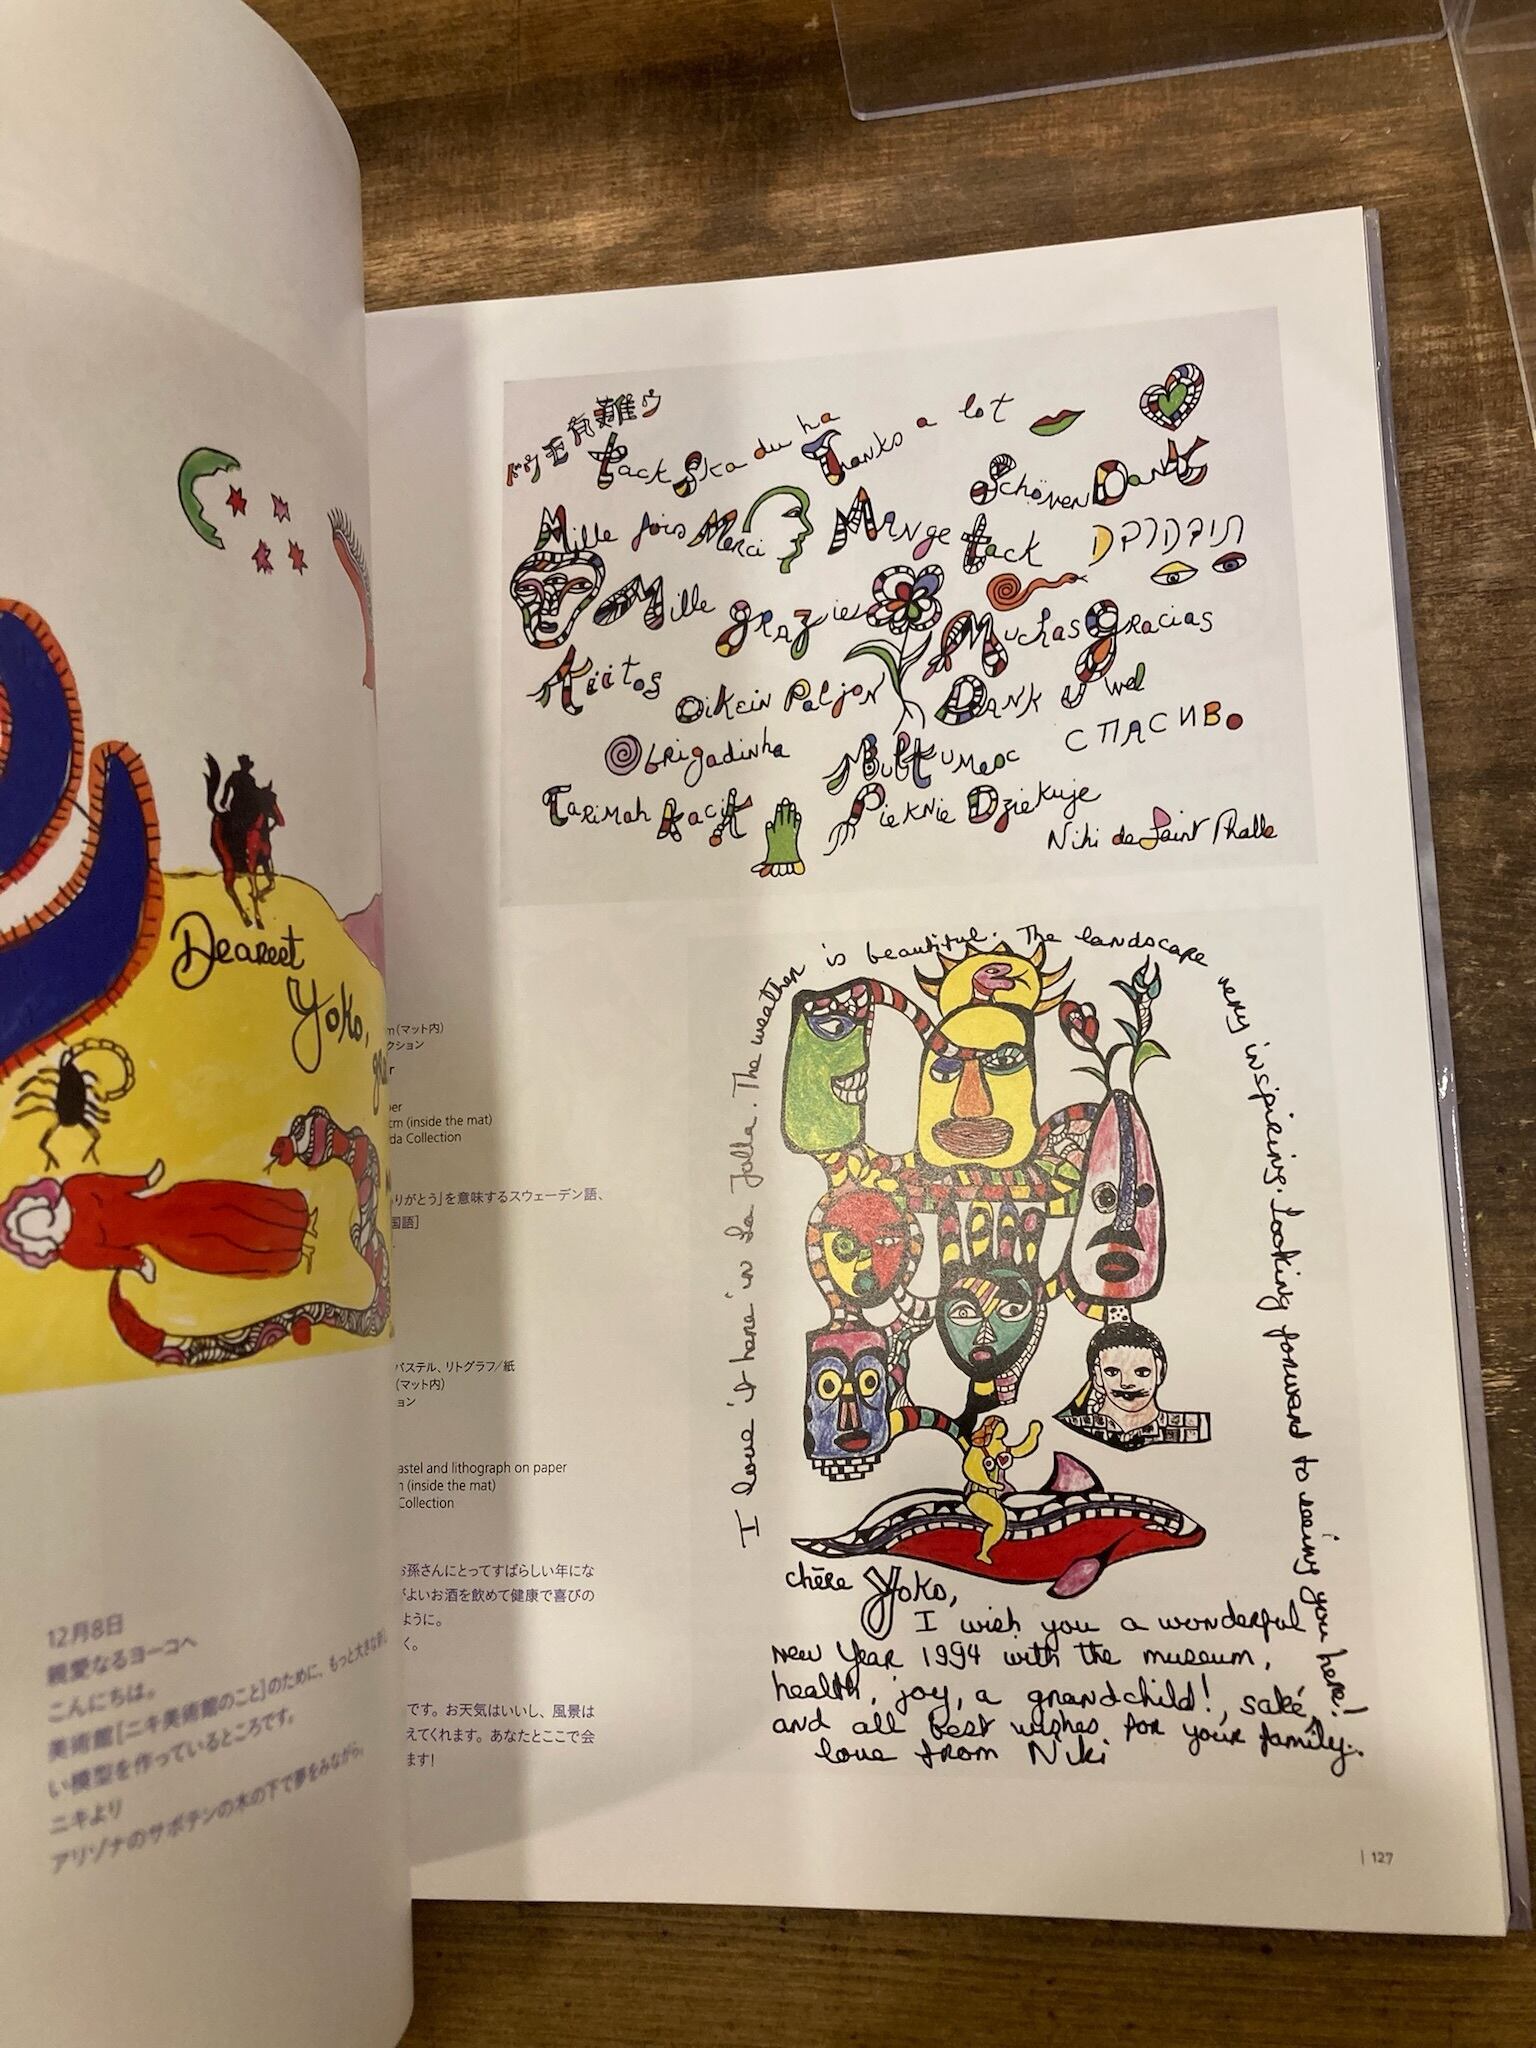 Dearest
Yoko,
12月8日
親愛なるヨーコへ
こんにちは。
美術館[ニキ美術館のこと]のために、もっと大きな新し
い模型を作っているところです。
ニキより
アリゾナのサボテンの木の下で夢をみながら。
m(マット内)
クション
r
per
cm (inside the mat)
da Collection
りがとう」を意味するスウェーデン語、
国語]
パステル、リトグラフ/紙
(マット内)
ョン
astel and lithograph on paper
n (inside the mat)
Collection
お孫さんにとってすばらしい年にな
がよいお酒を飲めて健康で喜びの
ように。
く。
です。お天気はいいし、風景は
えてくれます。あなたとここで会
ます!
ドウモ有難ウ
Tack Ska du ha
Thanks a lot
Schönen Dank
Mille fois Merci
Mange tack
Mille grazie
Muchas gracias
Kiitos
Oikein Paljon
Dank U wel
Obrigadinha
СПАСИВО
Tarimah Kacih
Pieknie Dziekuje
Niki de Saint Phalle
I love it here in La Jolla. The weather is beautiful. The landscape very inspiring. Looking forward to seeing you here!
chère Yoko,
I wish you a wonderful
New Year 1994 with the museum,
health, joy, a grandchild!, saké,
and all best wishes for your family.
love from Niki
| 127